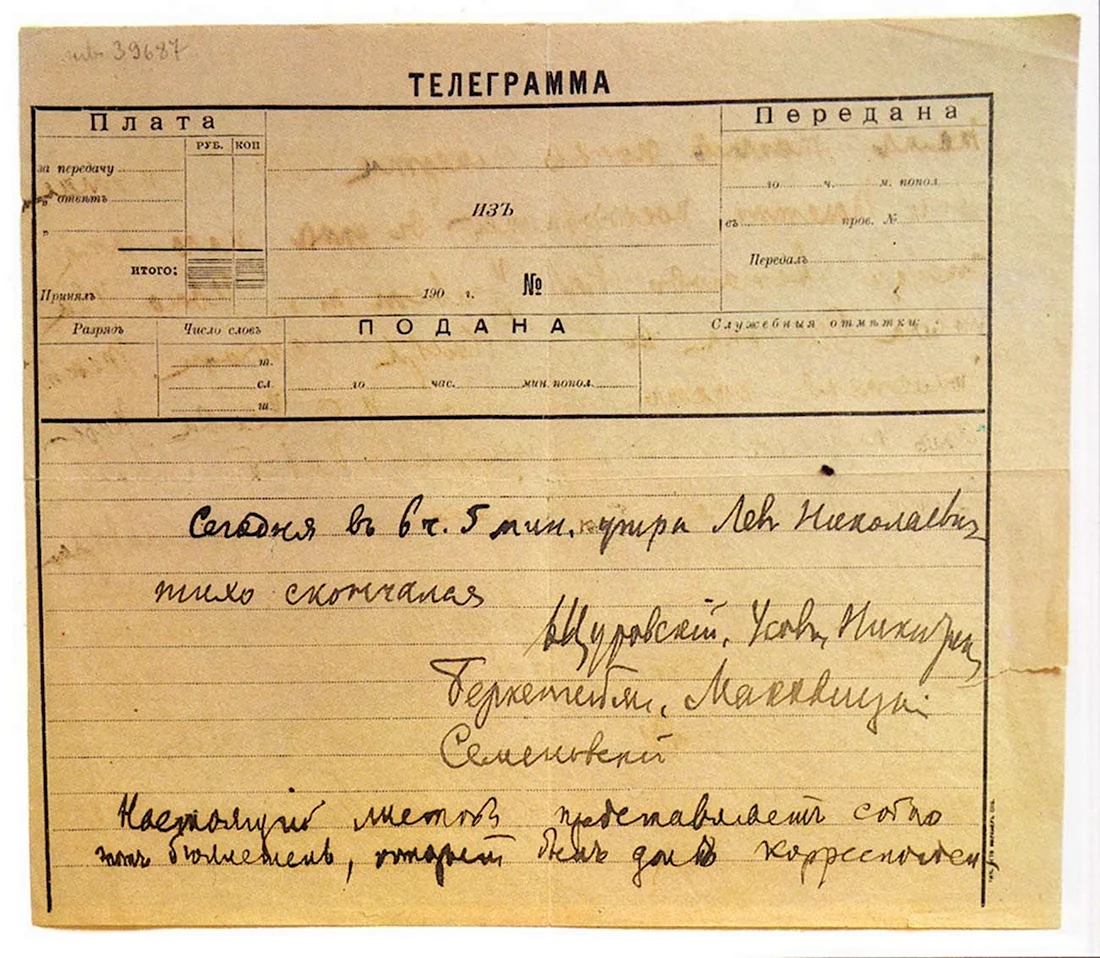 39687
ТЕЛЕГРАММА
Плата
РУБ. КОП
за передачу
„ отвѣтъ
„
ИТОГО:
Принялъ
ИЗЪ
190 г. №
Передана
го ч. м. попол.
въ пров. №
Передалъ
Разрядъ
Число словъ
т.
сл.
ш.
ПОДАНА
го час. мин. попол.
Служебныя отмѣтки:
Сегодня въ 6 ч. 5 мин. утра Левъ Николаевич
тихо скончался
Щуровскій, Усовъ, Никитин
Беркенгейм, Маковицкій
Семеновскій
Настоящій листокъ представляетъ собою
тотъ бюллетень, который былъ данъ корреспонден